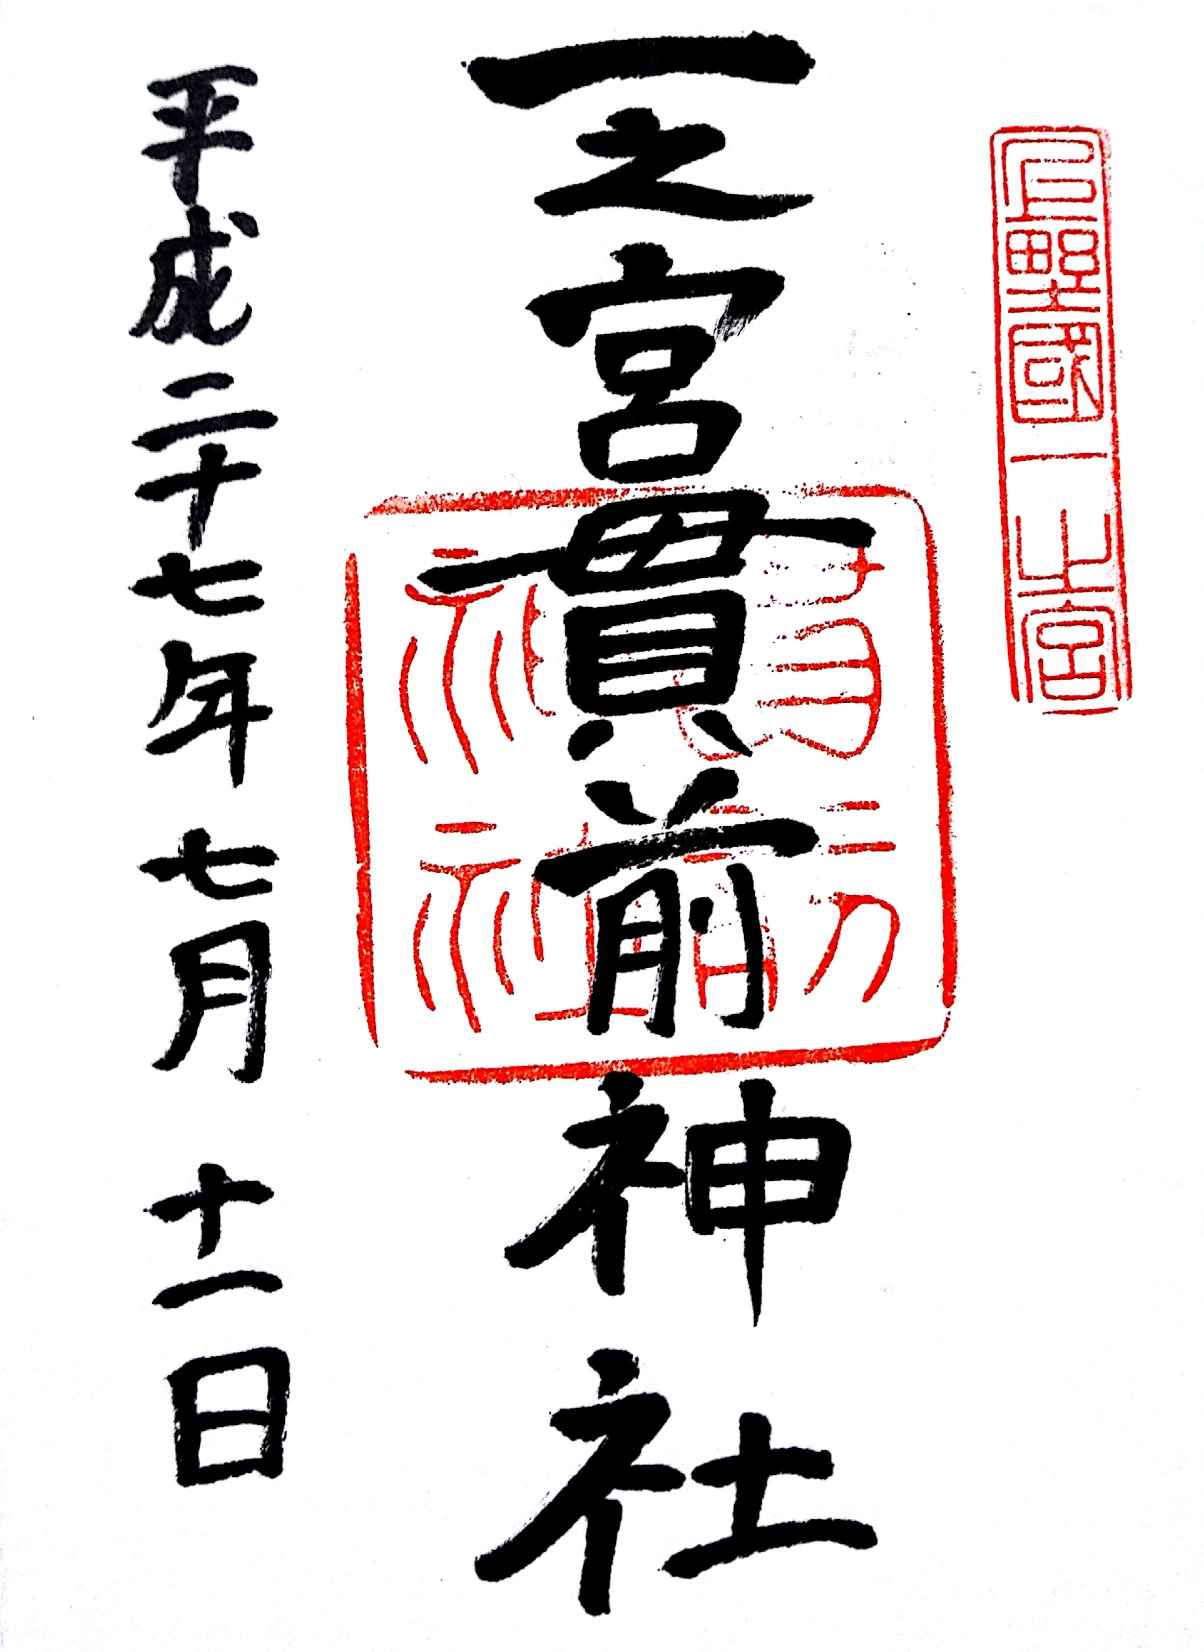 上野國一之宮
一之宮貫前神社
平成二十七年 七月 十一日